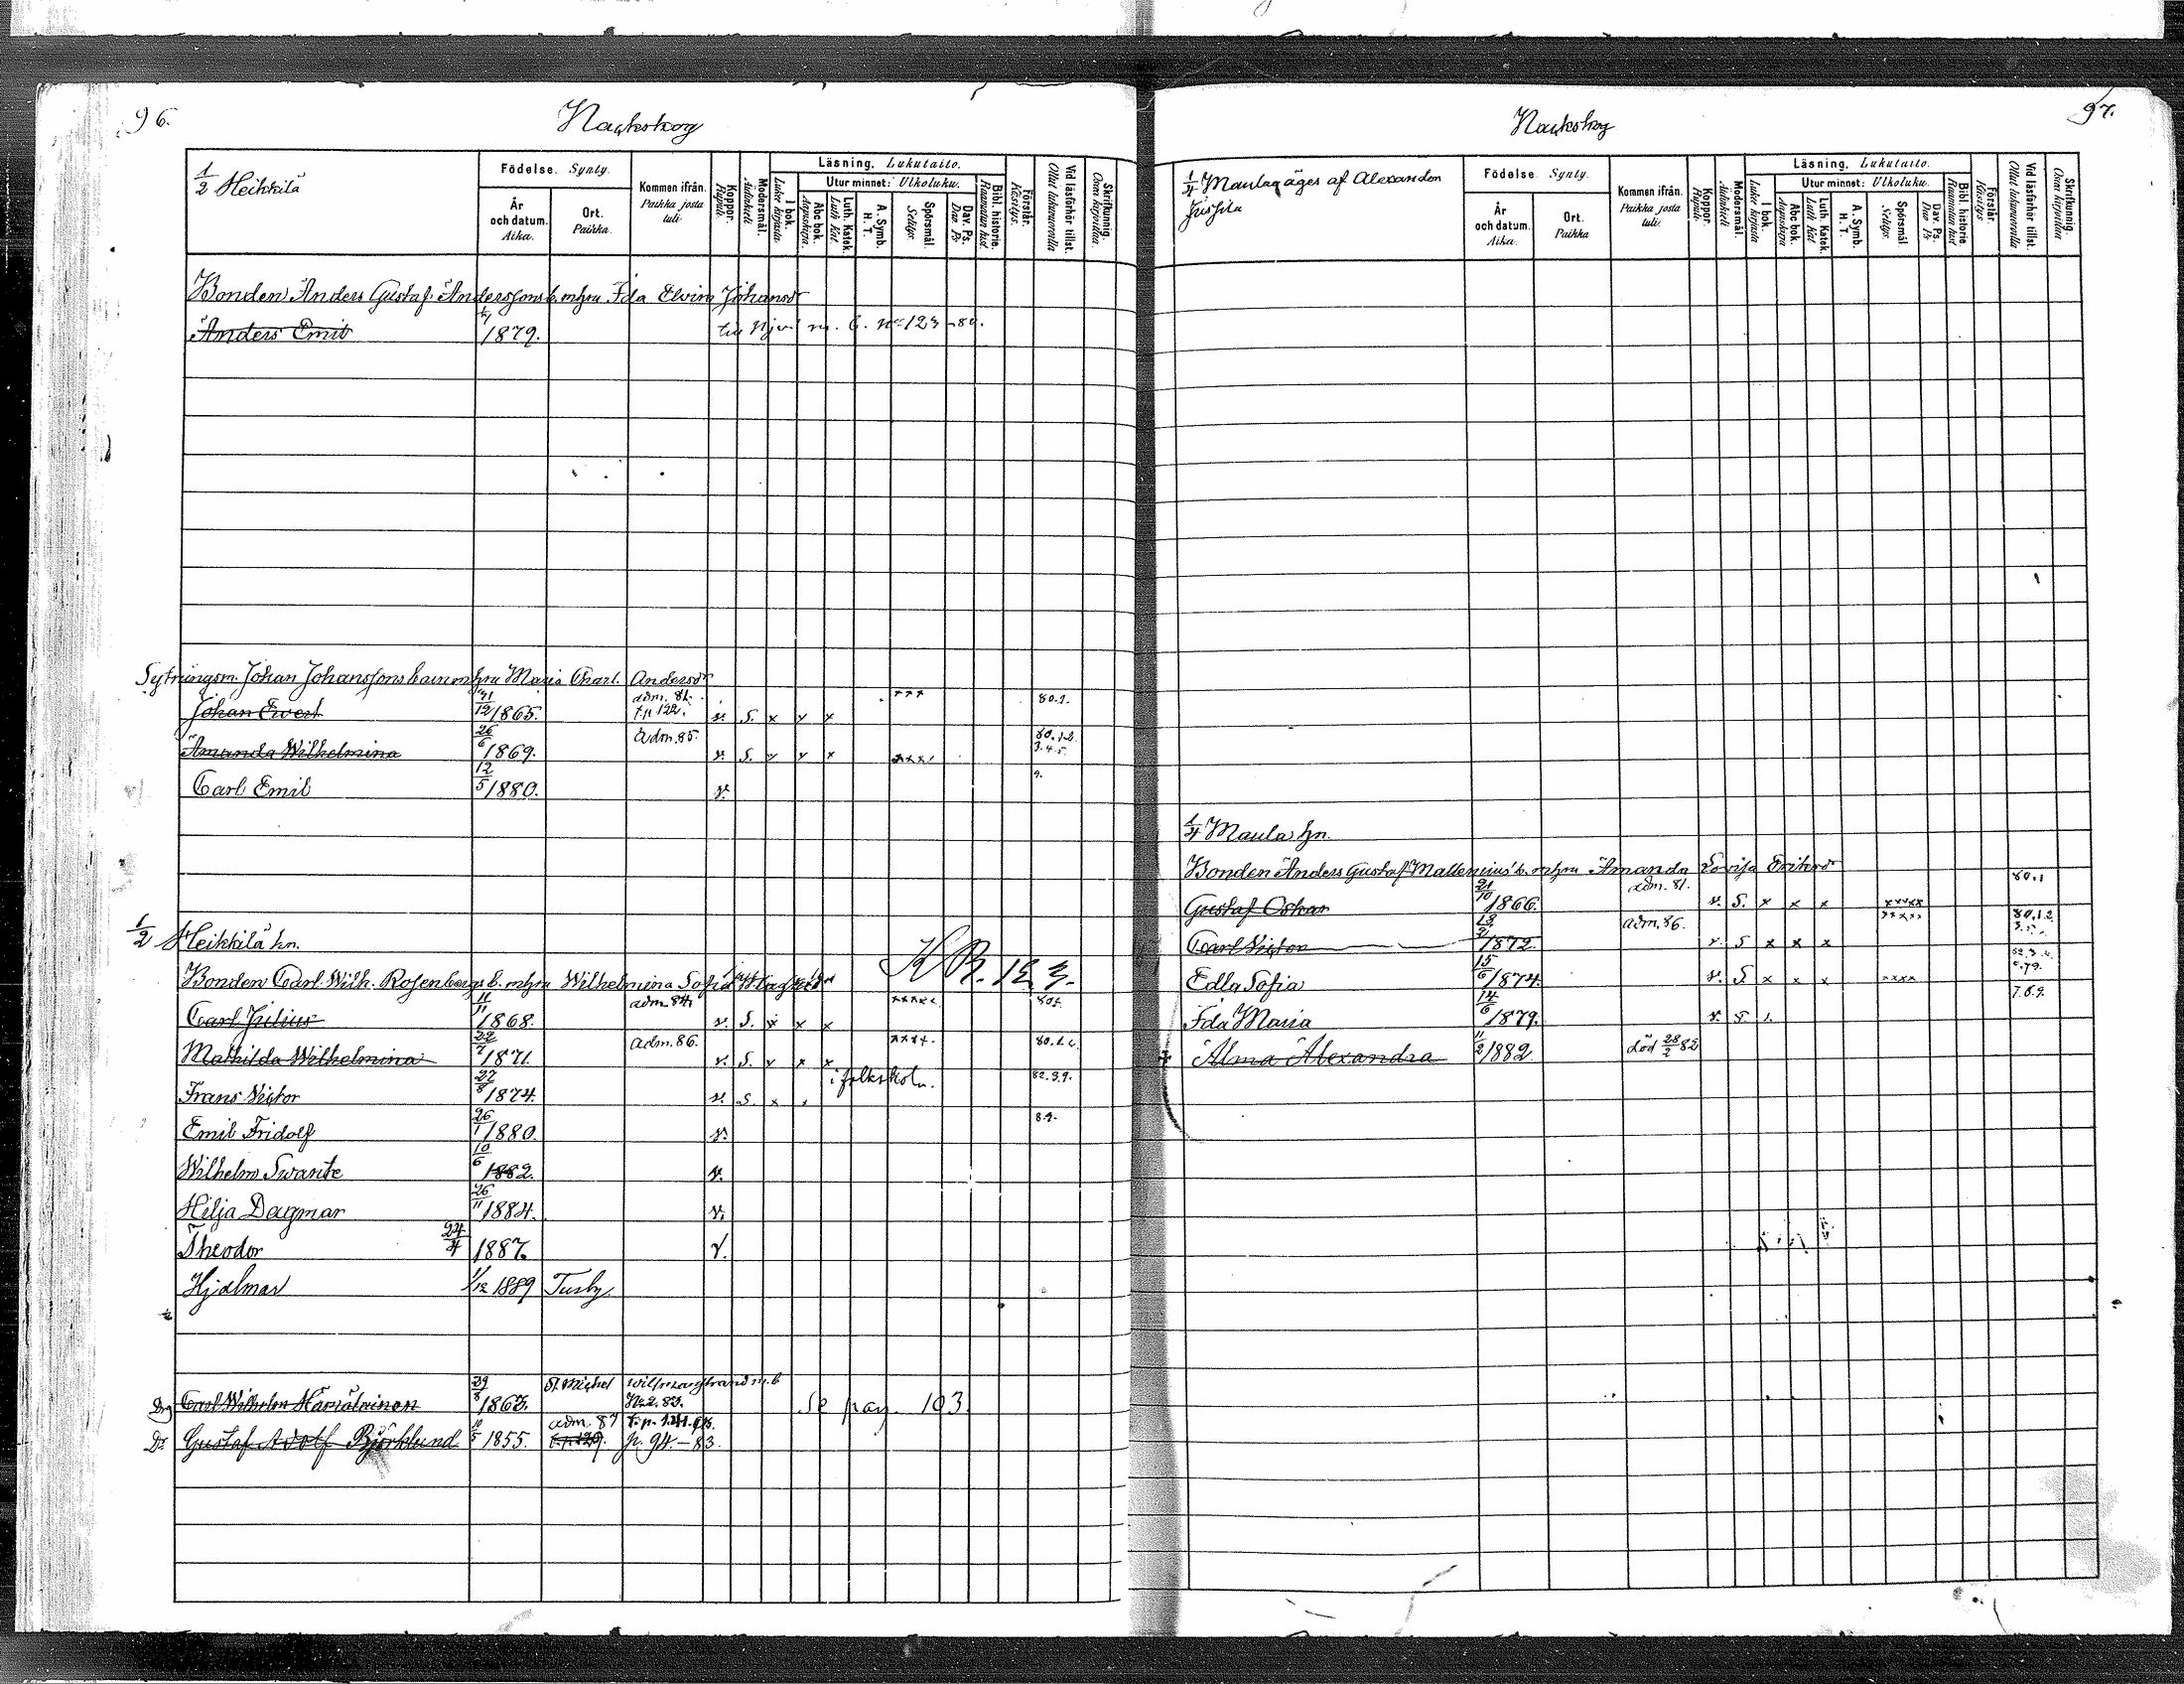 96.
Nackskog
1/2 Heikkilä
Födelse. Synty.
År och datum. Aika.
Ort. Paikka.
Kommen ifrån. Paikka josta tuli.
Koppor. Rupuli.
Modersmål. Äidinkieli
Läsning. Lukutaito.
I bok. Lukee kirjasta.
Utur minnet: Ulkoluku.
Abc bok. Aapiskirja.
Luth. Katek. Luth. Kat.
A. Symb. H. T.
Spörsmål. Selitys.
Dav. Ps. Dav. Ps
Bibl. historie. Raamatun hist.
Förstår. Käsitys.
Vid läsförhör tillst. Ollut lukuvuorolla
Skrifkunnig. Osaa kirjoittaa
Bonden Anders Gustaf Anderssons b. m hu Ida Elvira Johansdr
Anders Emil 1879. m. b. No 123 -80.
Sytningsm. Johan Johanssons barn m hu Maria Charl. Andersdr
Johan Evert 31/12 1865. adm. 81. t. p 122. v. S. x x x xxx 80.1.
Amanda Wilhelmina 26/6 1869. adm. 85. v. S. x x x xxx 80.1.2. 3.4.5.
Carl Emil 12/5 1880. v. 9.
1/2 Heikkilä hn.
Bonden Carl Wilh. Rosenbergs b. m hu Wilhelmina Sofia K B. 123.
Carl Julius 11/11 1868. adm. 84. v. S. x x x xxxxx 80.
Mathilda Wilhelmina 22/7 1871. adm. 86. v. S. x x x xxxx. 80.1.2.
Frans Victor 27/8 1874. v. S. x i folkskoln. 82.3.9.
Emil Fridolf 26/1 1880. v. 8.9.
Wilhelm Swante 10/6 1882. v.
Hilja Dagmar 26/11 1884. v.
Theodor 24/4 1887. v.
Hjalmar 1/12 1889 Tusby
Drg Carl Wilhelm Hämäläinen 29/8 1863. St. Michel m. b No 2. 83. Se pag. 103.
Dr Gustaf Adolf Björklund 10/5 1855. adm. 87 p. 94. - 83.
97.
Nackskog
1/4 Maula äges af Alexander
Jussila
Födelse. Synty.
År och datum. Aika.
Ort. Paikka
Kommen ifrån. Paikka josta tuli.
Koppor. Rupuli.
Modersmål. Äidinkieli
Läsning. Lukutaito.
I bok. Lukee kirjasta
Utur minnet: Ulkoluku.
Abc bok. Aapiskirja
Luth. Katek. Luth. Kat
A. Symb. H. T.
Spörsmål Selitys.
Dav. Ps. Dav. Ps
Bibl. historie. Raamatun hist
Förstår. Käsitys.
Vid läsförhör tillst. Ollut lukuvuorolla
Skrifkunnig. Osaa kirjoittaa
1/4 Maula hn.
Bonden Anders Gustaf Mallenius' b. m hu Amanda Lovisa Eriksdr
Gustaf Oskar 21/10 1866. adm. 81. v. S. x x x xxxxx 80.1
Carl Victor 1872. adm. 86. v. S x x x xxxxx 80.1.2.
Edla Sofia 15/6 1874. v. S. x x x xxxx
Ida Maria 14/6 1879. v. S 7.8.9.
† Alma Alexandra 11/2 1882 död 28/2 82